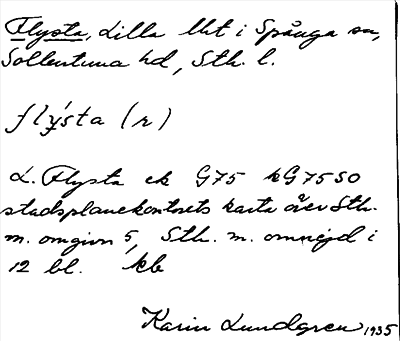 Flysta, Lilla lht i Spånga sn,
Sollentuna hd, Sth. l.
flýsta (r)
L. Flysta ek G75 kG75SO
stadsplanekontorets karta över Sth.
m. omgivn 5, Sth. m. omnejd i
12 bl. kb
Karin Lundgren 1935